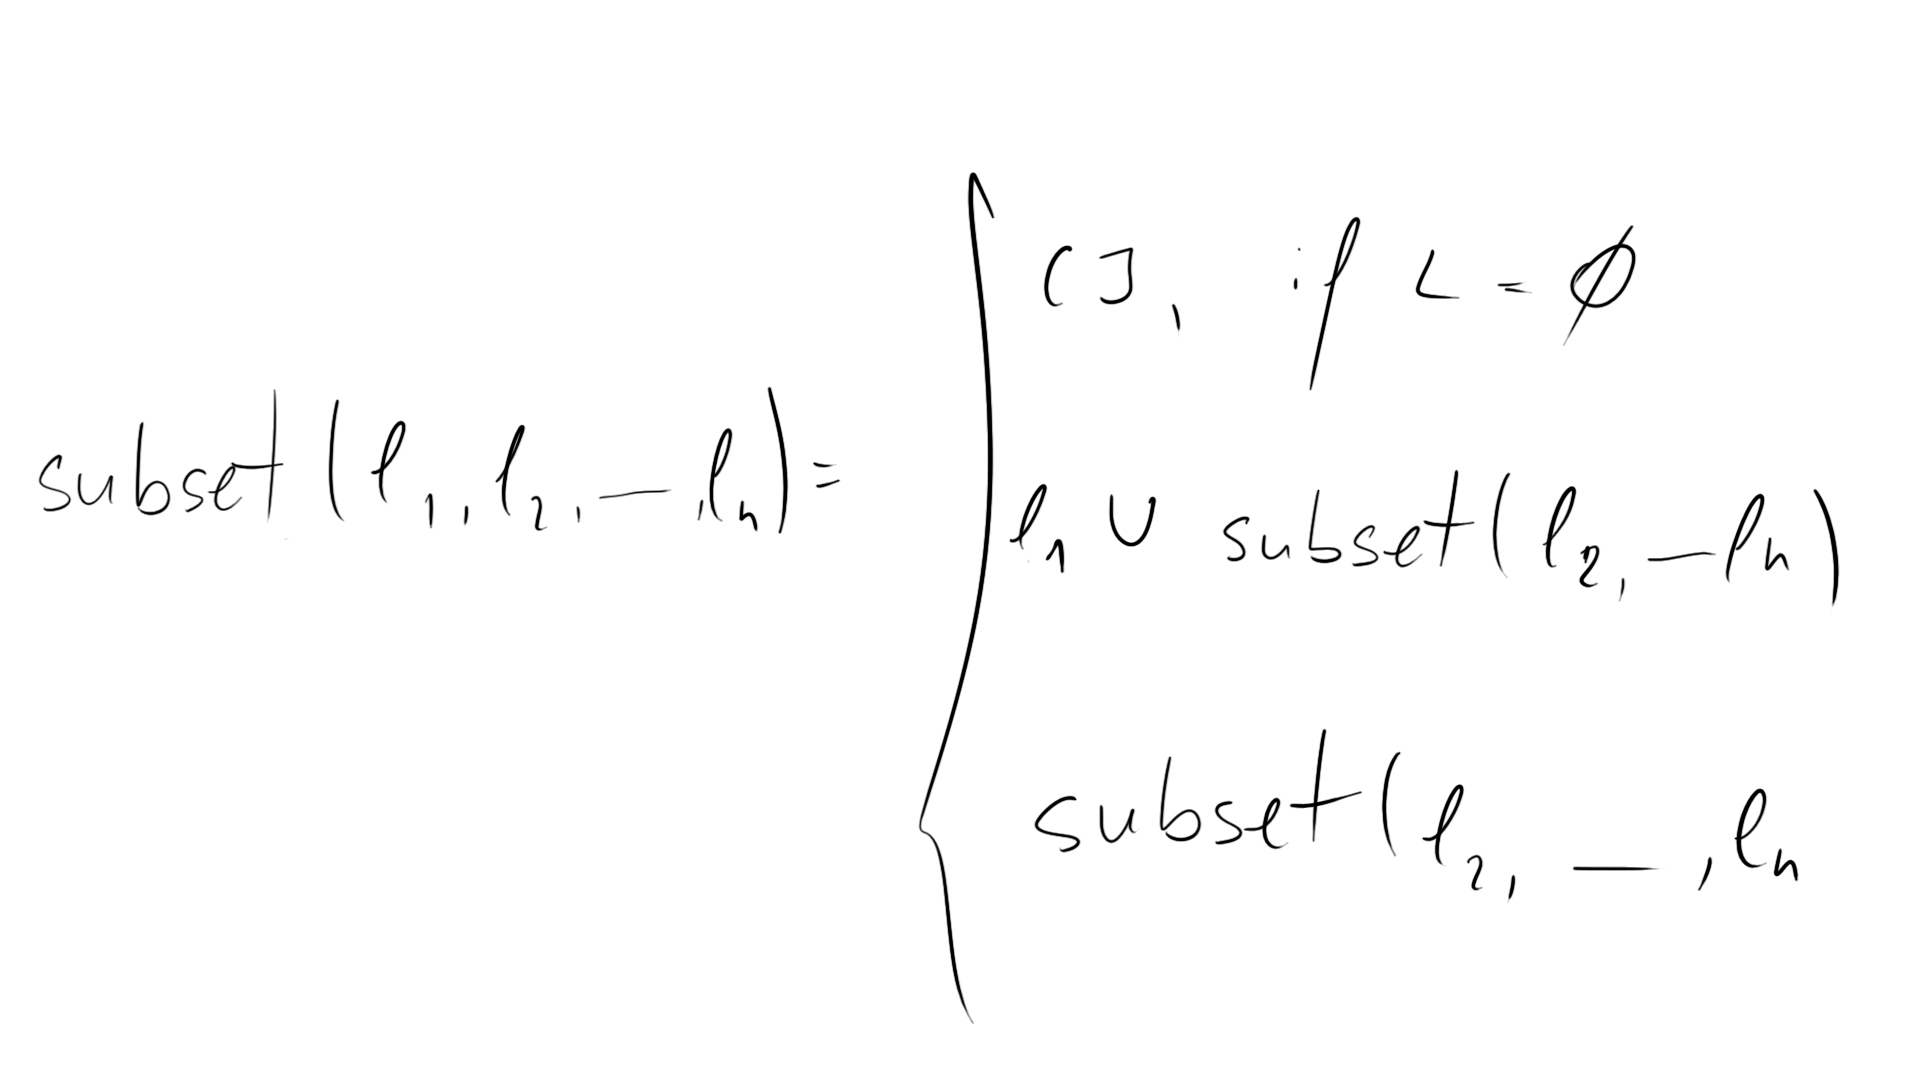 subset (l₁, l₂, — , lₙ) =
[ ] , if L = ∅
l₁ ∪ subset (l₂, — lₙ)
subset (l₂, — , lₙ